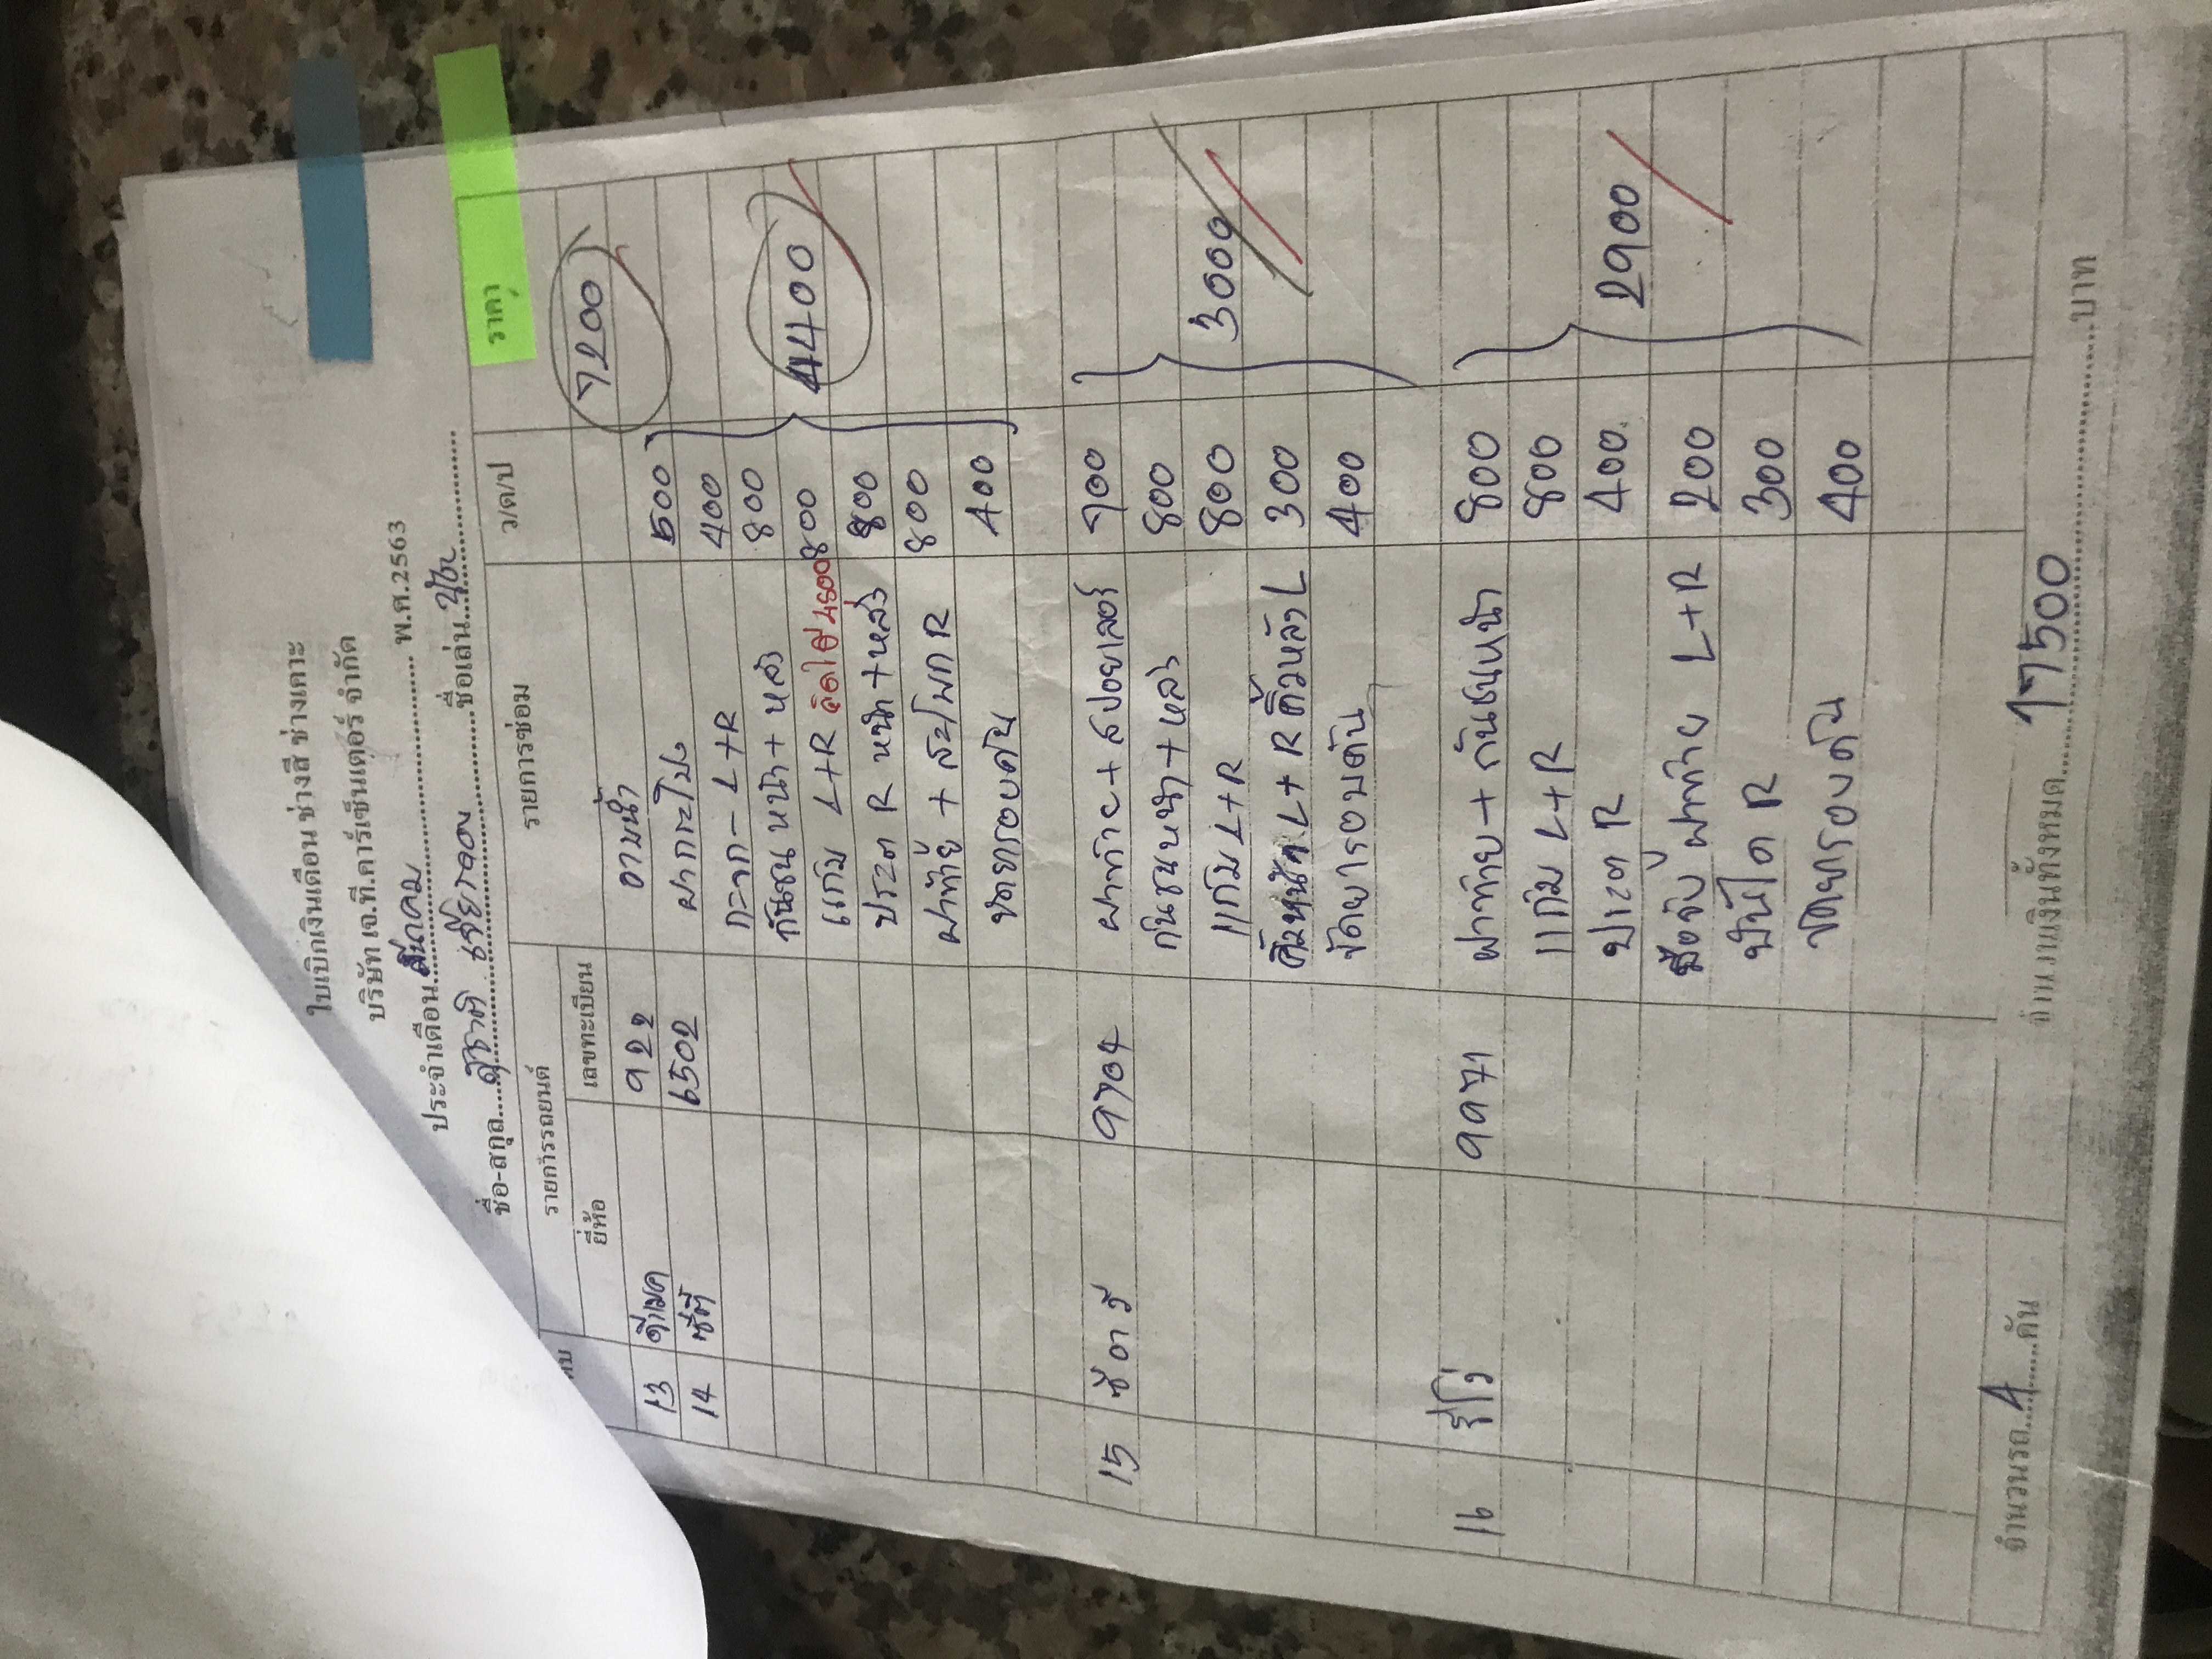 ใบเบิกเงินเดือน ช่างสี ช่างเคาะ
บริษัท เจ.ที.คาร์เซ็นเตอร์ จำกัด
ประจำเดือน มีนาคม พ.ศ.2563
ชื่อ-สกุล สุชาติ ชื่อเล่น
รายการรถยนต์ รายการซ่อม ว/ด/ป ราคา
ยี่ห้อ เลขทะเบียน
13 ดีแมค 922 อาบน้ำ 7200
14 ซิตี้ 6502 ฝากระโปง 500
กะจก - L+R 400
กันชน หน้า + หลัง 800
แก้ม L+R คิดให้ 4800 800 4400
ประต R หน้า + หลัง 800
ฝาท้าย + สะโพก R 800
ขัดยารอบคัน 400
15 ซีอาวี 9704 ฝาท้าย + สปอยเลอร์ 700
กันชนหน้า + หลัง 800
แก้ม L+R 800 3000
คิ้วหน้า L+R คิ้วหลัง L 300
ขัดยารอบคัน 400
16 รีโว่ 9971 ฝาท้าย + กันชนหน้า 800
แก้ม L+R 800
ประต R 400 2900
มือจับ ฝาท้าย L+R 200
บันได R 300
ขัดยารอบคัน 400
จำนวนรถ 4 คัน จำนวนเงินทั้งหมด 17500 บาท